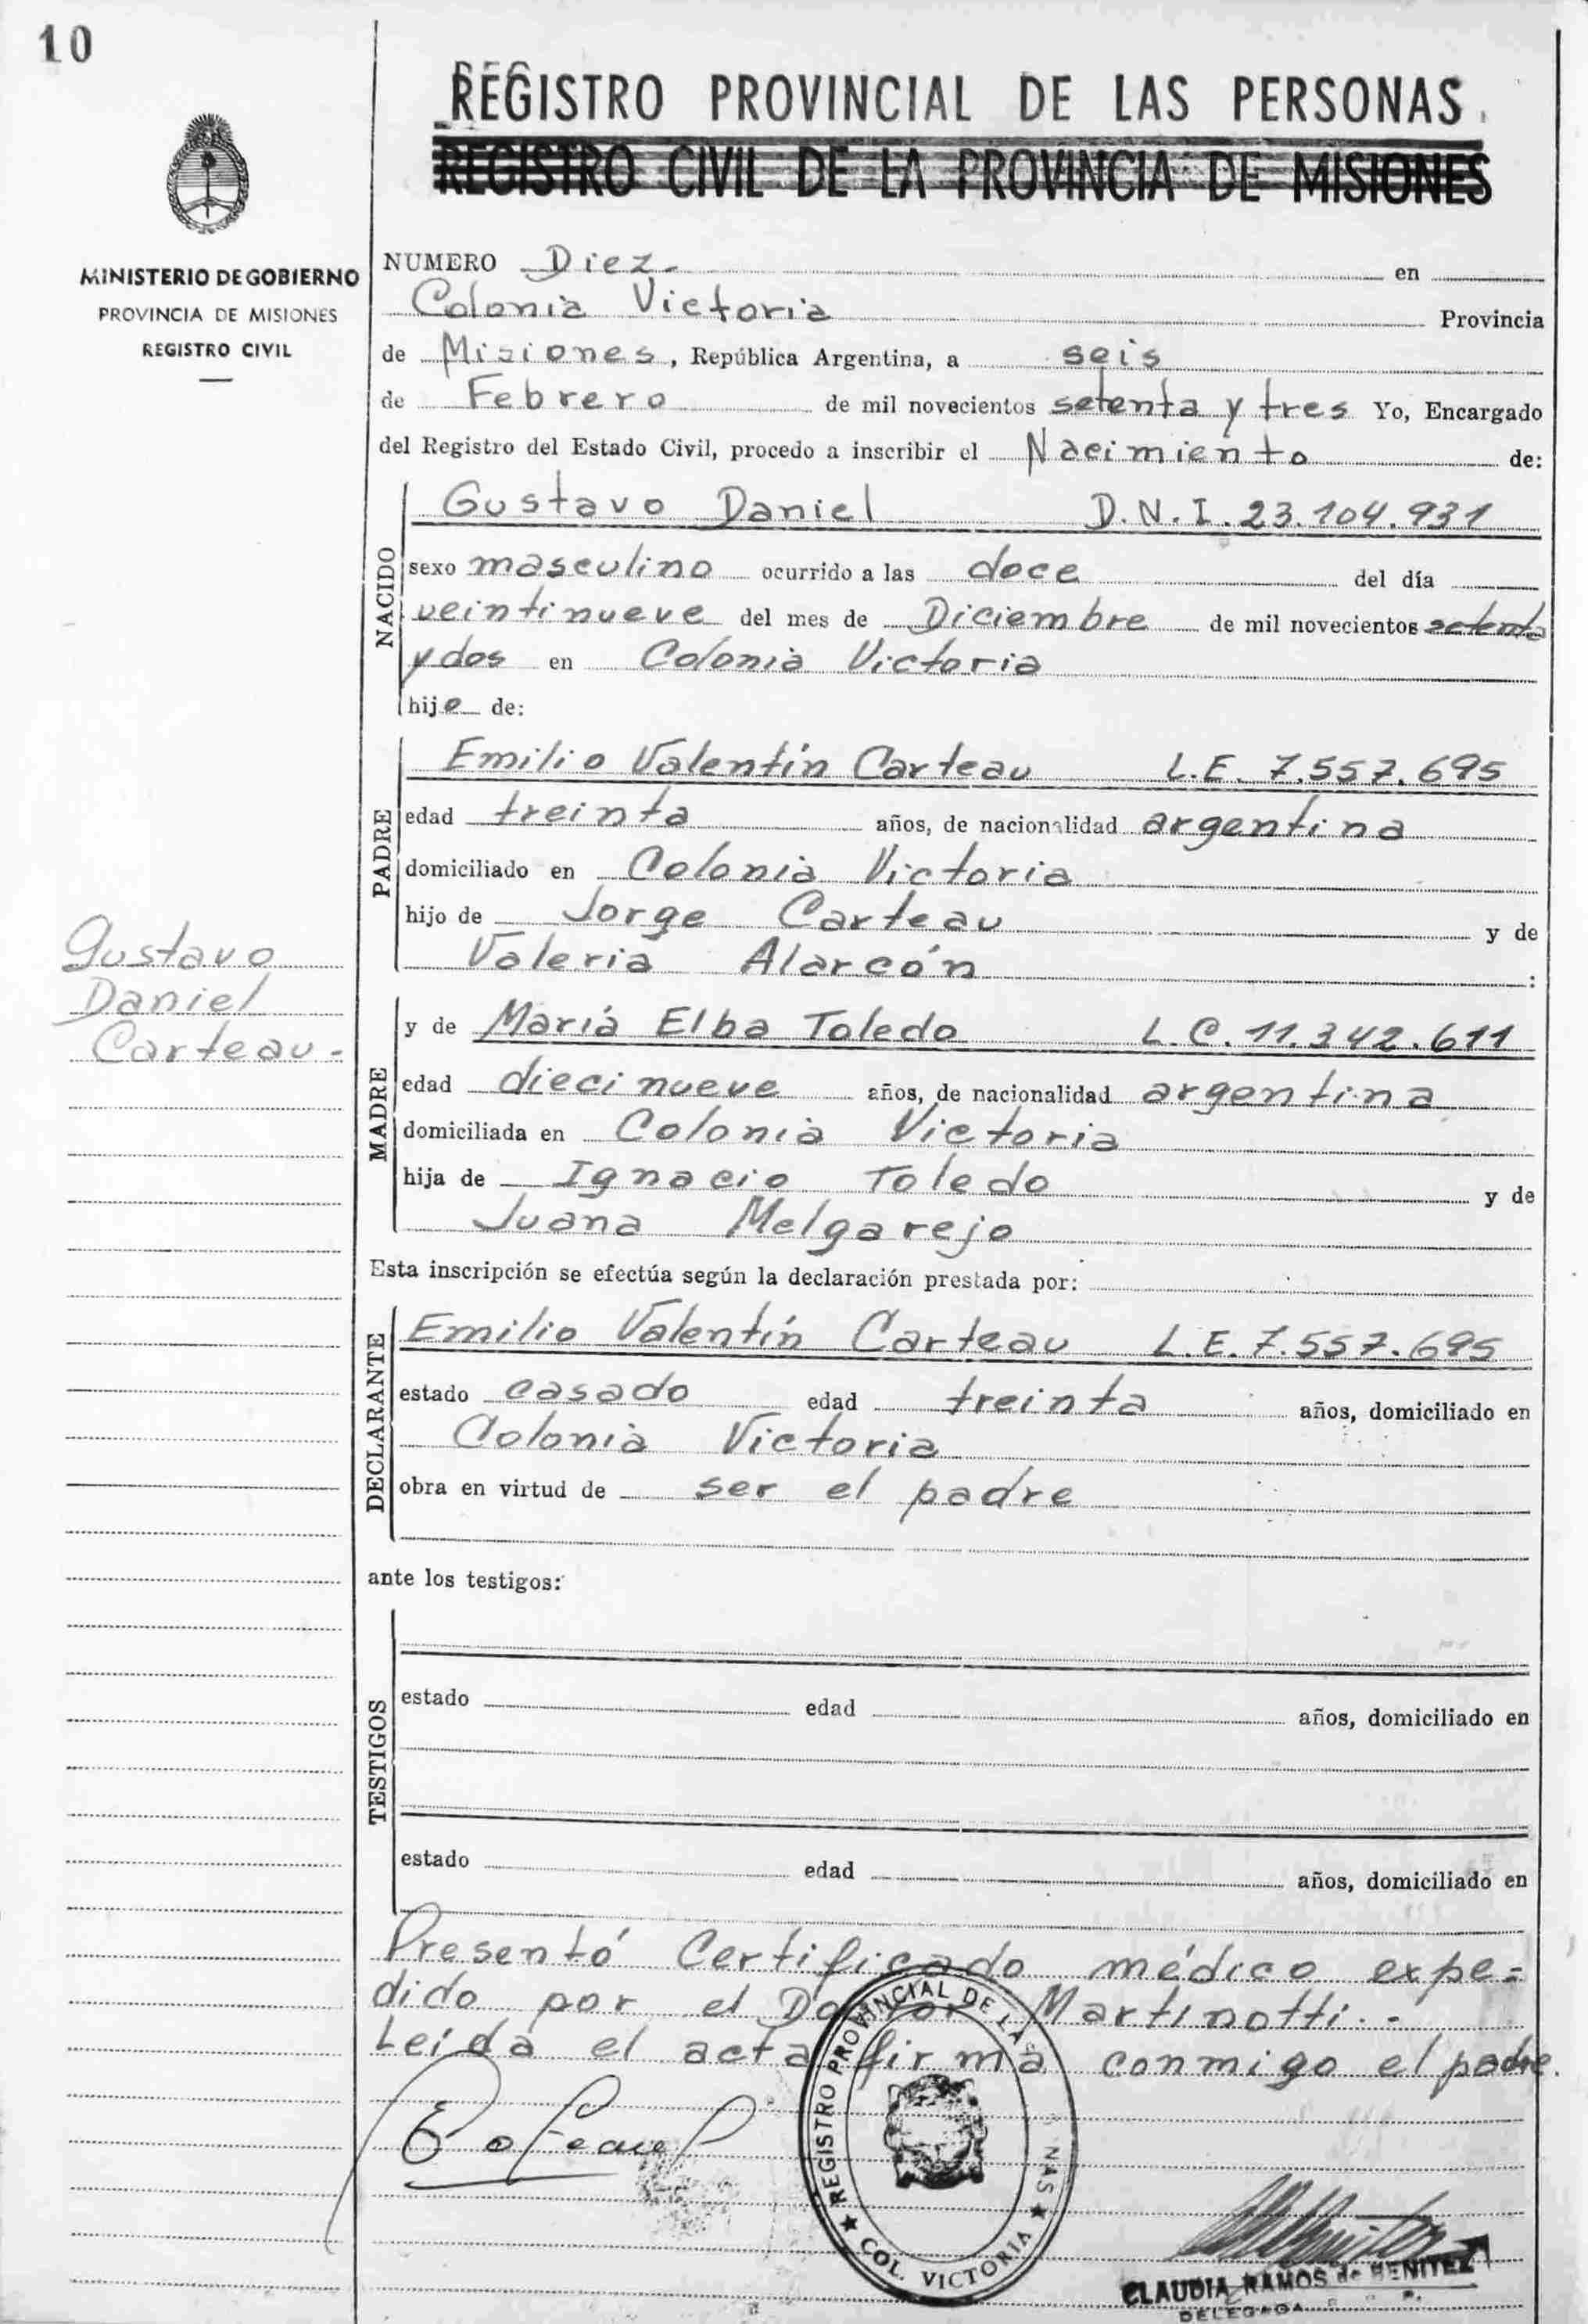 10
REGISTRO PROVINCIAL DE LAS PERSONAS.
REGISTRO CIVIL DE LA PROVINCIA DE MISIONES
MINISTERIO DE GOBIERNO
PROVINCIA DE MISIONES
REGISTRO CIVIL
NUMERO Diez.- en
Colonia Victoria Provincia
de Misiones, República Argentina, a seis
de Febrero de mil novecientos setenta y tres Yo, Encargado
del Registro del Estado Civil, procedo a inscribir el Nacimiento de:
NACIDO
Gustavo Daniel D.N.I. 23.104.931
sexo masculino ocurrido a las doce del día
veintinueve del mes de Diciembre de mil novecientos setenta
y dos en Colonia Victoria
hijo de:
PADRE
Emilio Valentín Carteau L.E. 7.557.695
edad treinta años, de nacionalidad argentina
domiciliado en Colonia Victoria
hijo de Jorge Carteau y de
Valeria Alarcón :
Gustavo
Daniel
Carteau.-
MADRE
y de María Elba Toledo L.C. 11.342.611
edad diecinueve años, de nacionalidad argentina
domiciliada en Colonia Victoria
hija de Ignacio Toledo y de
Juana Melgarejo
Esta inscripción se efectúa según la declaración prestada por:
DECLARANTE
Emilio Valentín Carteau L.E. 7.557.695
estado casado edad treinta años, domiciliado en
Colonia Victoria
obra en virtud de ser el padre
ante los testigos:
TESTIGOS
estado edad años, domiciliado en
estado edad años, domiciliado en
Presentó Certificado médico expe=
dido por el Doctor Martinotti.-
Leída el acta firma conmigo el padre.
REGISTRO PROVINCIAL DE LAS NAS
COL. VICTORIA
CLAUDIA RAMOS de BENITEZ
DELEGADA